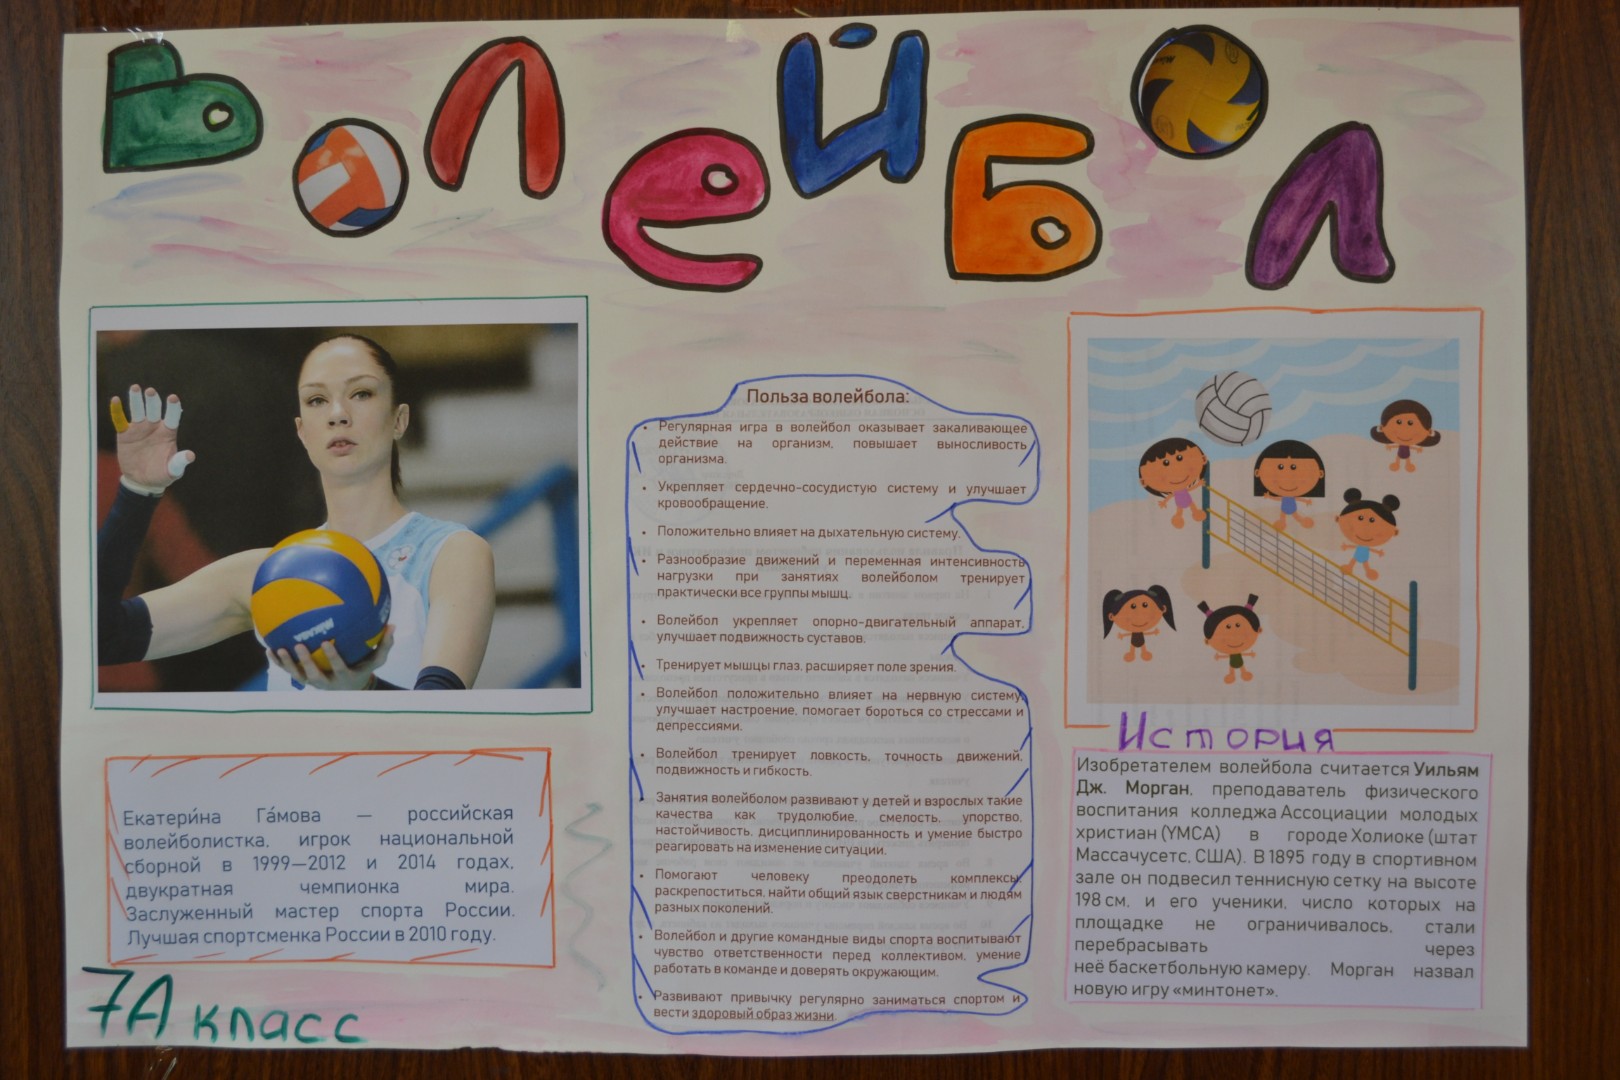 Волейбол
MIKASA
Екатери́на Га́мова — российская
волейболистка, игрок национальной
сборной в 1999—2012 и 2014 годах,
двукратная чемпионка мира.
Заслуженный мастер спорта России.
Лучшая спортсменка России в 2010 году.
7А класс
Польза волейбола:
• Регулярная игра в волейбол оказывает закаливающее
действие на организм, повышает выносливость
организма.
• Укрепляет сердечно-сосудистую систему и улучшает
кровообращение.
• Положительно влияет на дыхательную систему.
• Разнообразие движений и переменная интенсивность
нагрузки при занятиях волейболом тренирует
практически все группы мышц.
• Волейбол укрепляет опорно-двигательный аппарат,
улучшает подвижность суставов.
• Тренирует мышцы глаз, расширяет поле зрения.
• Волейбол положительно влияет на нервную систему,
улучшает настроение, помогает бороться со стрессами и
депрессиями.
• Волейбол тренирует ловкость, точность движений,
подвижность и гибкость.
• Занятия волейболом развивают у детей и взрослых такие
качества как трудолюбие, смелость, упорство,
настойчивость, дисциплинированность и умение быстро
реагировать на изменение ситуации.
• Помогают человеку преодолеть комплексы,
раскрепоститься, найти общий язык сверстникам и людям
разных поколений.
• Волейбол и другие командные виды спорта воспитывают
чувство ответственности перед коллективом, умение
работать в команде и доверять окружающим.
• Развивают привычку регулярно заниматься спортом и
вести здоровый образ жизни.
История
Изобретателем волейбола считается Уильям
Дж. Морган, преподаватель физического
воспитания колледжа Ассоциации молодых
христиан (YMCA) в городе Холиоке (штат
Массачусетс, США). В 1895 году в спортивном
зале он подвесил теннисную сетку на высоте
198 см, и его ученики, число которых на
площадке не ограничивалось, стали
перебрасывать через
неё баскетбольную камеру. Морган назвал
новую игру «минтонет».